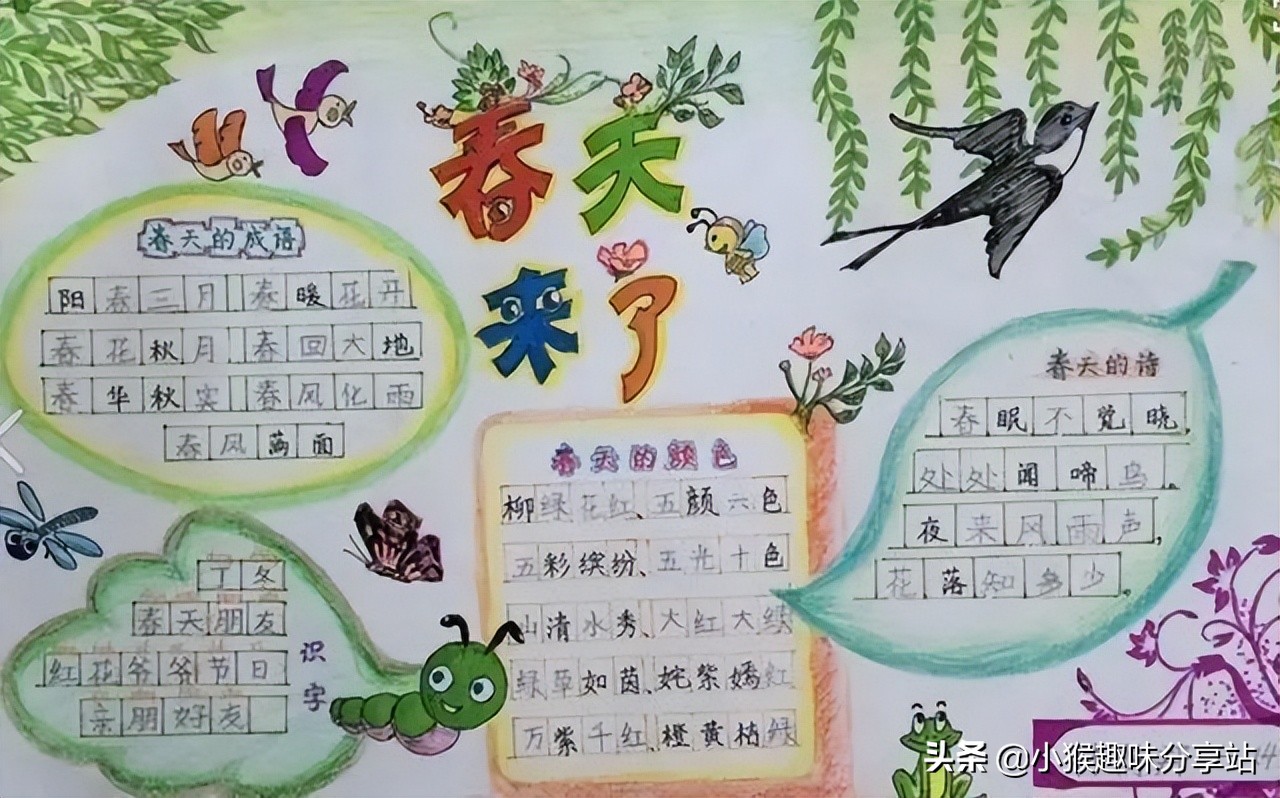 春天
来了
春天的成语
阳春三月 春暖花开
春花秋月 春回大地
春华秋实 春风化雨
春风满面
春天的诗
春眠不觉晓,
处处闻啼鸟。
夜来风雨声,
花落知多少。
春天的颜色
柳绿花红、五颜六色
五彩缤纷、五光十色
山清水秀、大红大绿
绿草如茵、姹紫嫣红
万紫千红、橙黄桔绿
丁冬
春天朋友
红花爷爷节日
亲朋好友
识字
头条 @小猴趣味分享站